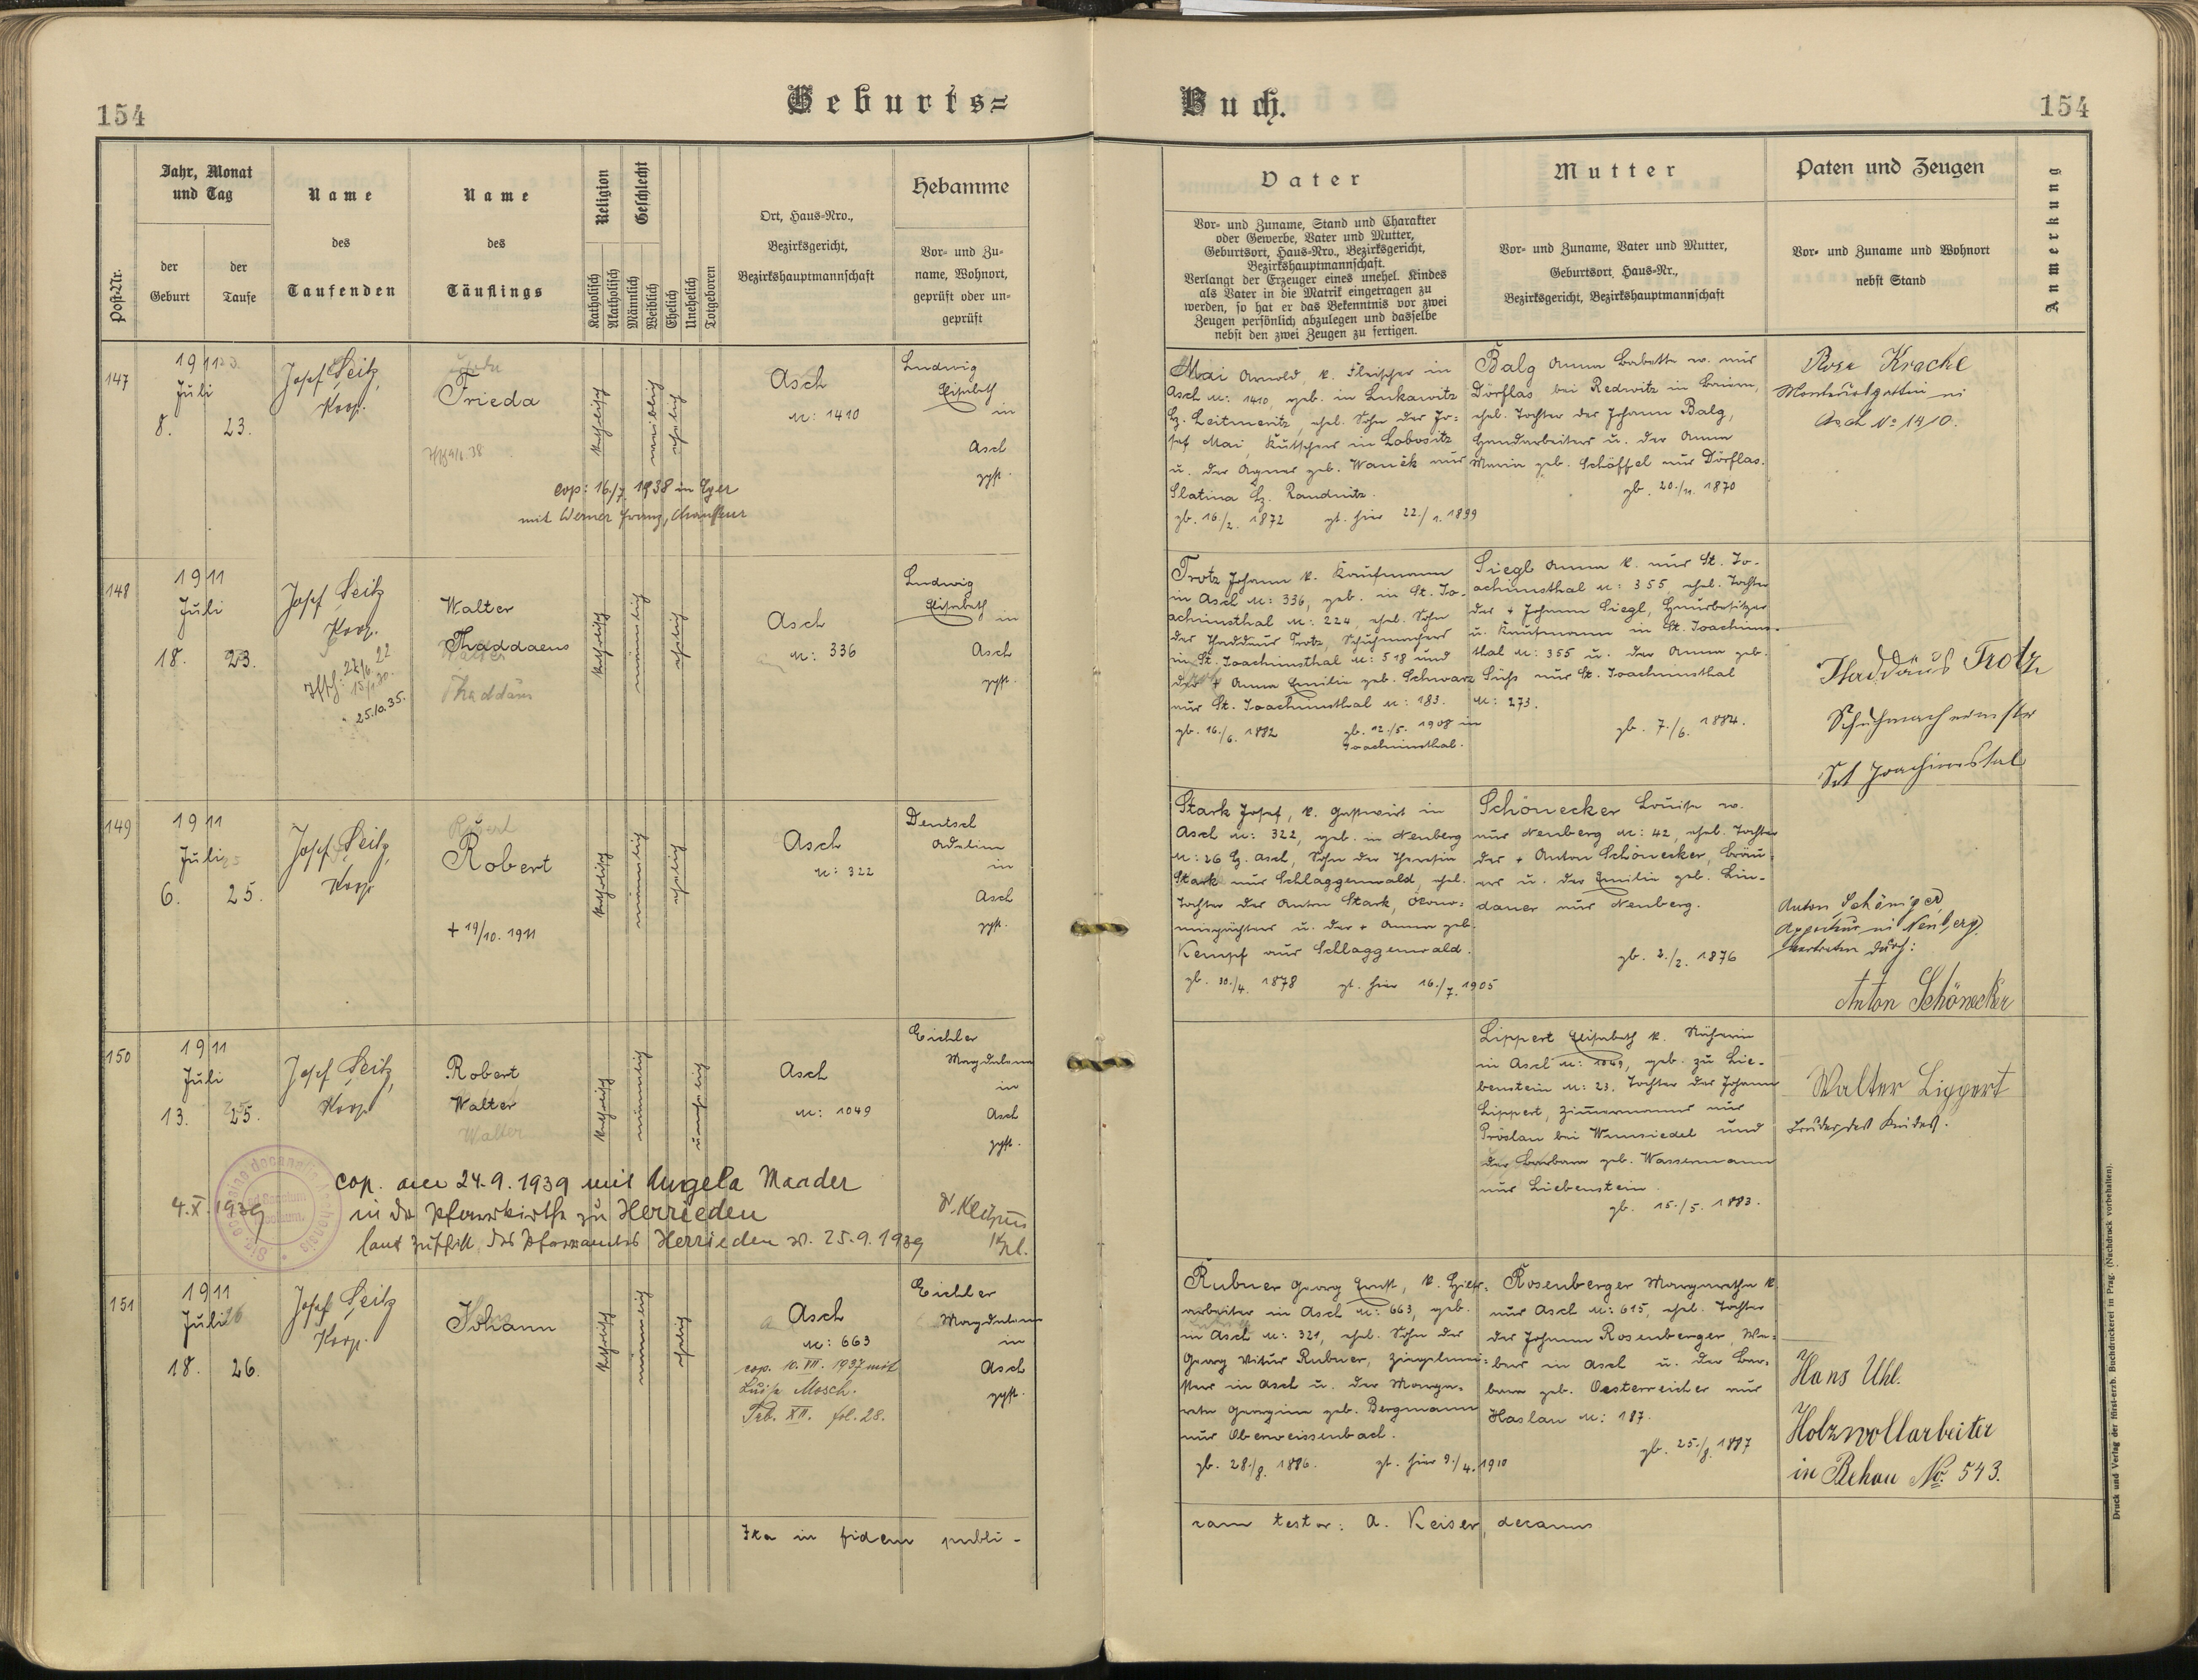 154
Geburts=
Jahr, Monat
und Tag
Name
des
Taufenden
Name
des
Täuflings
Religion
Geschlecht
Ort, Haus=Nro.,
Bezirksgericht,
Bezirkshauptmannschaft
Hebamme
Vor= und Zu=
name, Wohnort,
geprüft oder un=
geprüft
Post=Nr.
der
Geburt
der
Taufe
Katholisch
Akatholisch
Männlich
Weiblich
Ehelich
Unehelich
Totgeboren
147
1911
Juli
8. 23.
Josef Seitz,
Koop.
Frieda
katholisch
weiblich
ehelich
Asch
N: 1410
Ludwig
Elisabeth
in
Asch
gepr.
cop: 16./7. 1938 in Eger
mit Werner Franz, Chauffeur
148
1911
Juli
18. 23.
Josef Seitz
Koop.
25.10.35.
Walter
Thaddaeus
Thaddäus
katholisch
männlich
ehelich
Asch
N: 336
Ludwig
Elisabeth
in
Asch
gepr.
149
1911
Juli
6. 25.
Josef Seitz,
Koop
Robert
+ 19/10. 1911
katholisch
männlich
ehelich
Asch
N: 322
Deutsch
Adelina
in
Asch
gepr.
150
1911
Juli
13. 25.
Josef Seitz,
Koop
Robert
Walter
Walter
katholisch
männlich
unehelich
Asch
N: 1049
Eichler
Magdalena
in
Asch
gepr.
4.X.1939
cop. am 24.9.1939 mit Angela Maader
in der Pfarrkirche zu Herrieden
laut Zuschr. des Pfarramtes Herrieden v. 25.9.1939
Kpl.
151
1911
Juli
18. 26.
Josef Seitz
Koop.
Johann
katholisch
männlich
ehelich
Asch
N: 663
cop. 10. VII. 1937 mit
Luise Mosch.
Trb. XII. fol. 28.
Eichler
Magdalena
in
Asch
gepr.
Ita in fidem publi-
Buch.
154
Vater
Vor= und Zuname, Stand und Charakter
oder Gewerbe, Vater und Mutter,
Geburtsort, Haus=Nro., Bezirksgericht,
Bezirkshauptmannschaft.
Verlangt der Erzeuger eines unehel. Kindes
als Vater in die Matrik eingetragen zu
werden, so hat er das Bekenntnis vor zwei
Zeugen persönlich abzulegen und dasselbe
nebst den zwei Zeugen zu fertigen.
Mutter
Vor= und Zuname, Vater und Mutter,
Geburtsort, Haus=Nr.,
Bezirksgericht, Bezirkshauptmannschaft
Paten und Zeugen
Vor= und Zuname und Wohnort
nebst Stand
Anmerkung
Mai Arnold, k. Fleischer in
Asch N: 1410, geb. in Lukawitz
Bz. Leitmeritz, ehel. Sohn des Jo=
sef Mai, Kutschers in Lobositz
u. der Agnes geb. Wanĕk aus
Slatina Bz. Raudnitz.
gb. 16./2. 1872 gt. hier 22./1. 1899
Balg Anna Babette w. aus
Dörflas bei Redwitz in Baiern,
ehel. Tochter des Johann Balg,
Handarbeiters u. der Anna
Maria geb. Schöffel aus Dörflas.
gb. 20./11. 1870
Rosa Krache
Asch No 1410.
Trotz Johann k. Kaufmann
in Asch N: 336, geb. in St. Jo-
achimsthal N: 224, ehel. Sohn
des Thaddäus Trotz, Schuhmachers
in St. Joachimsthal N: 518 und
der + Anna Emilie geb. Schwarz
aus St. Joachimsthal N: 183.
gb. 16./6. 1882 gt. 12./5. 1908 in
Joachimsthal.
Siegl Anna k. aus St. Jo-
achimsthal N: 355, ehel. Tochter
des + Johann Siegl, Hausbesitzer
u. Kaufmann in St. Joachims-
thal N: 355 u. der Anna geb.
Süss aus St. Joachimsthal
N: 273.
gb. 7./6. 1884.
Thaddäus Trotz
Schuhmachermeister
Set Joachimstal
Stark Josef, k. Gastwirt in
Asch N: 322, geb. in Neuberg
N: 26 Bz. Asch, Sohn der Theresia
Stark aus Schlaggenwald, ehel.
Tochter des Anton Stark, Ökono=
miepächters u. der + Anna geb.
Kempf aus Schlaggenwald.
gb. 30./4. 1878 gt. hier 16./7. 1905
Schönecker Louise w.
aus Neuberg N: 42, ehel. Tochter
des + Anton Schönecker, Bräu=
ers u. der Emilie geb. Lin-
dauer aus Neuberg.
gb. 2./2. 1876
Anton Schöniger,
Appreteur in Neuberg
vertreten durch:
Anton Schönecker
Lippert Elisabeth k. Näherin
in Asch N: 1049, geb. zu Lie-
benstein N: 23. Tochter des Johann
Lippert, Zimmermanns aus
Pröslau bei Wunsiedel und
der Barbara geb. Wassermann
aus Liebenstein.
gb. 15./5. 1883.
Walter Lippert
Bruder des Kindes.
Rubner Georg Ernst, k. Hilfs=
arbeiter in Asch N: 663, geb.
in Asch N: 321, ehel. Sohn des
Georg Vitus Rubner, Ziegelmei=
sters in Asch u. der Marga=
reta Georgina geb. Bergmann
aus Oberweissenbach.
gb. 28./8. 1886. gt. hier 9./4. 1910
Rosenberger Margaretha k.
aus Asch N: 615, ehel. Tochter
des Johann Rosenberger, We=
bers in Asch u. der Bar=
bara geb. Oesterreicher aus
Haslau N: 187.
gb. 25./8. 1887
Hans Uhl.
Holzwollarbeiter
in Rehau No. 543.
cam testor: A. Keiser, decanus
Druck und Verlag der fürst-erzb. Buchdruckerei in Prag. (Nachdruck vorbehalten).